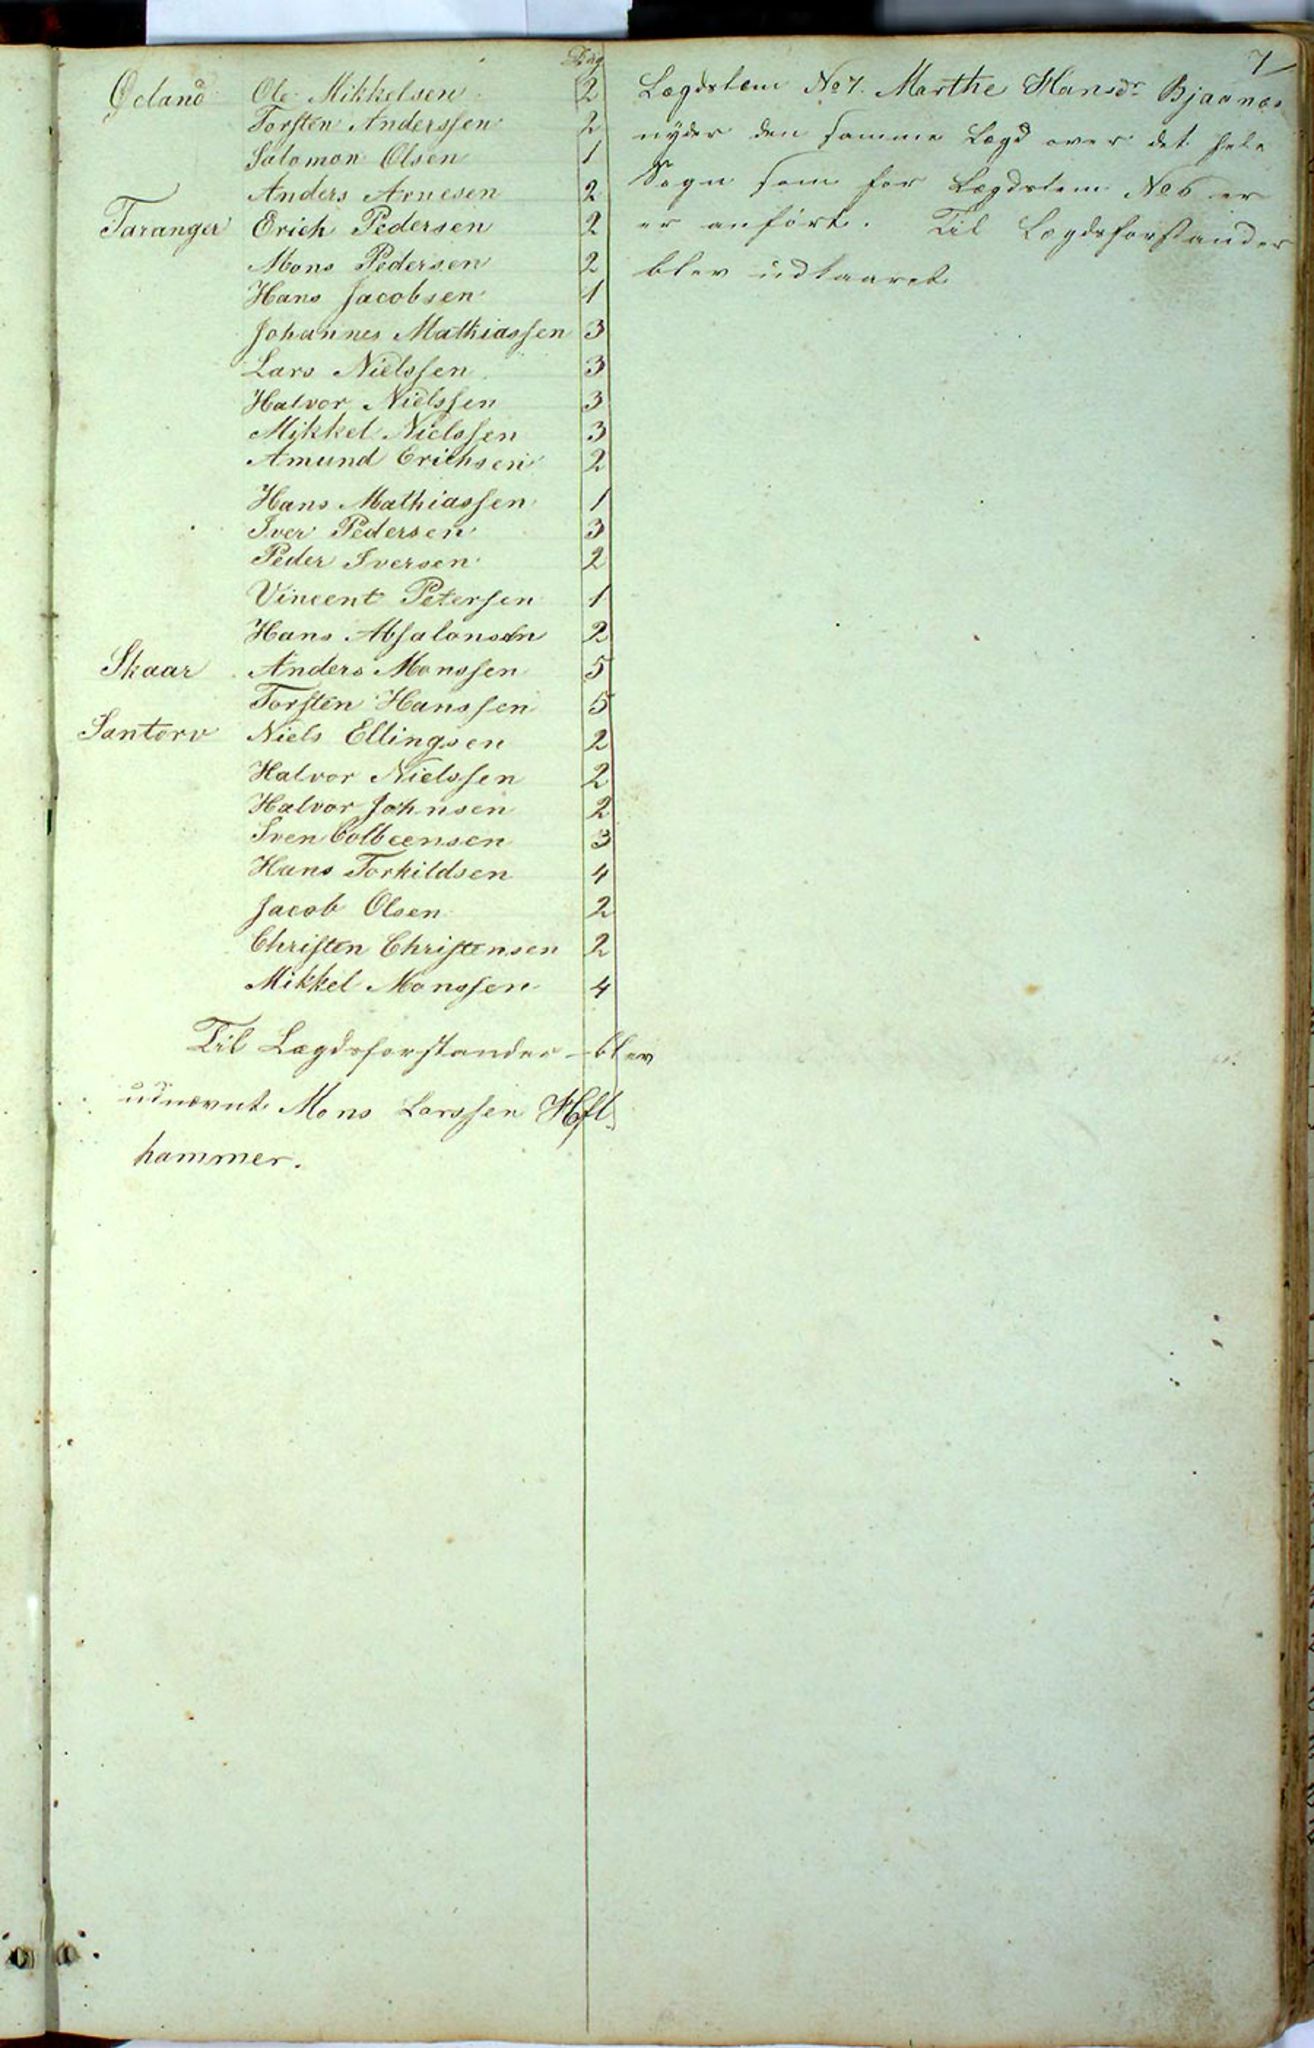 Dag
Øeland Ole Mikkelsen 2
Torsten Anderssen 2
Salomon Olsen 1
Anders Arnesen 2
Taranger Erich Pedersen 2
Mons Pedersen 2
Hans Jacobsen 1
Johannes Mathiassen 3
Lars Nielssen 3
Halvor Nielssen 3
Mikkel Nielssen 3
Amund Erichsen 2
Hans Mathiassen 1
Iver Pedersen 3
Peder Iversen 2
Vincent Petersen 1
Hans Absalonsen 2
Skaar Anders Monssen 5
Torsten Hanssen 5
Santorv Niels Ellingsen 2
Halvor Nielssen 2
Halvor Johnsen 2
Sven Colbeensen 3
Hans Torkildsen 4
Jacob Olsen 2
Christen Christensen 2
Mikkel Monssen 4
Til Lægdsforstander blev
udnævnt Mons Larssen
hammer.
7
Lægdslem No 7. Marthe Hansdr Bjaanæs
nyder den samme Lægd over det hele
Sogn som for Lægdslem No 6 er
er anført. Til Lægdsforstander
blev udkaaret